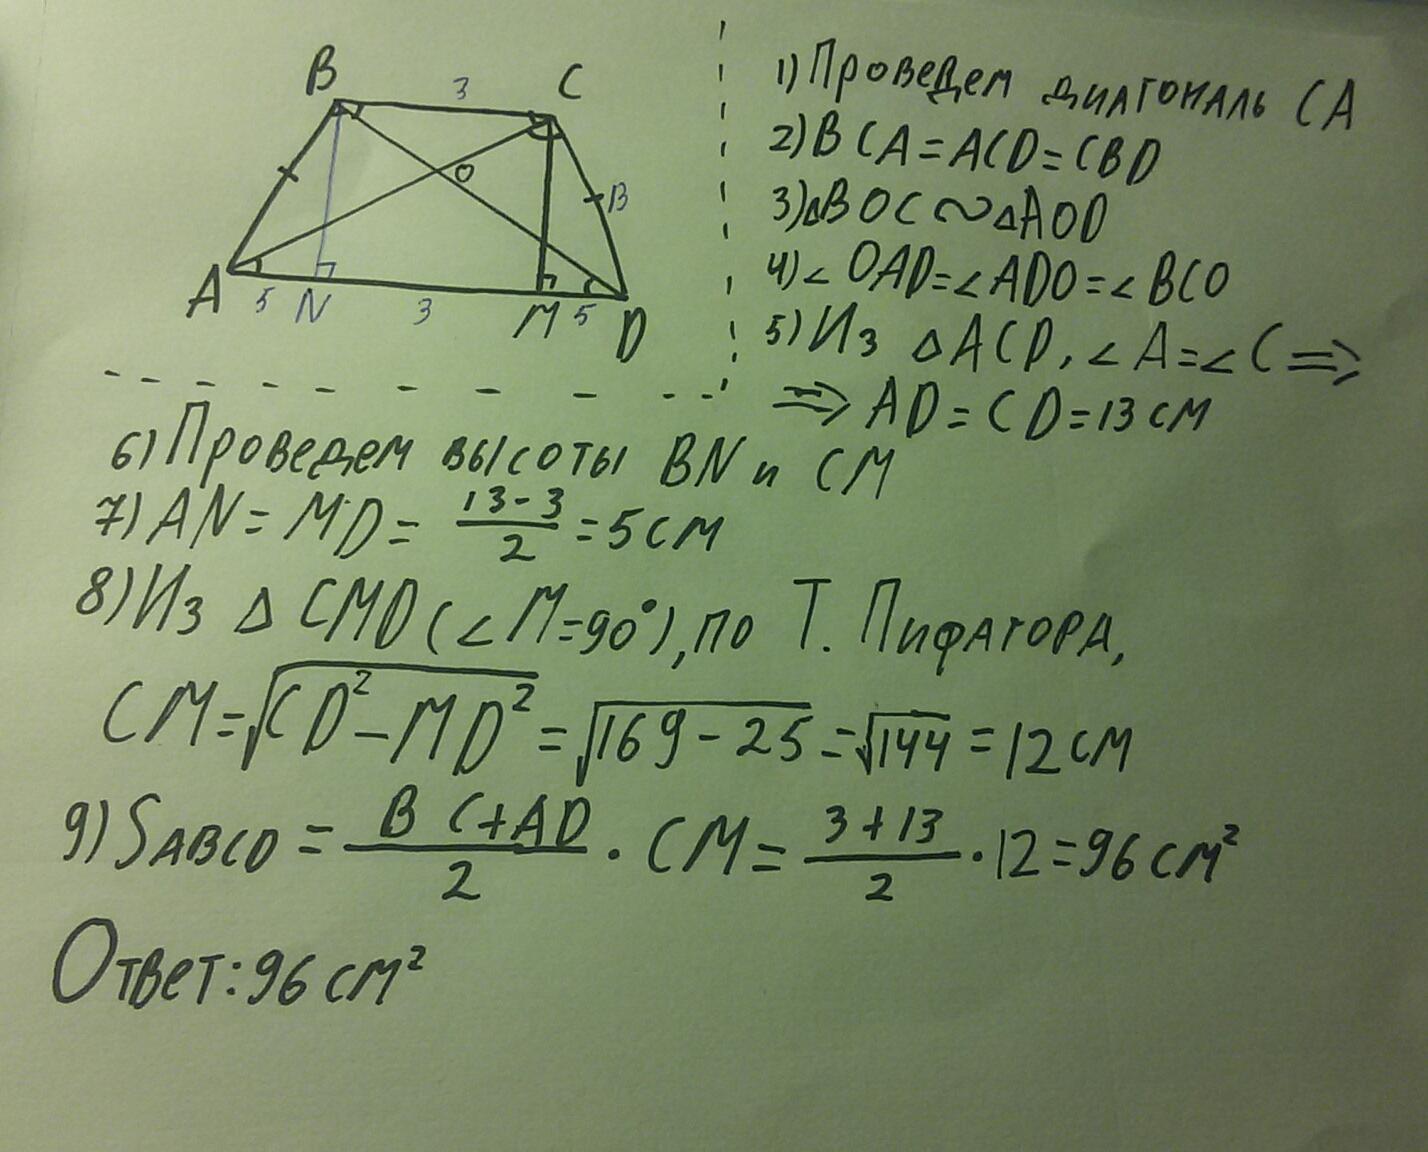 B 3 C
O
B
A 5 N 3 M 5 D
1) Проведем диагональ CA
2) BCA = ACD = CBD
3) ΔBOC ∾ ΔAOD
4) ∠OAD = ∠ADO = ∠BCO
5) Из ΔACD, ∠A = ∠C ⇒
⇒ AD = CD = 13 см
6) Проведем высоты BN и CM
7) AN = MD = (13-3)/2 = 5 см
8) Из Δ CMD (∠M=90°), по Т. Пифагора,
CM = √(CD² - MD²) = √(169 - 25) = √144 = 12 см
9) SABCD = (BC+AD)/2 · CM = (3+13)/2 · 12 = 96 см²
Ответ: 96 см²